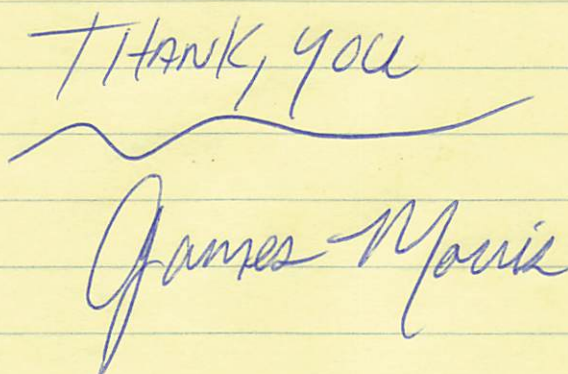 THANK, YOU
James Morris